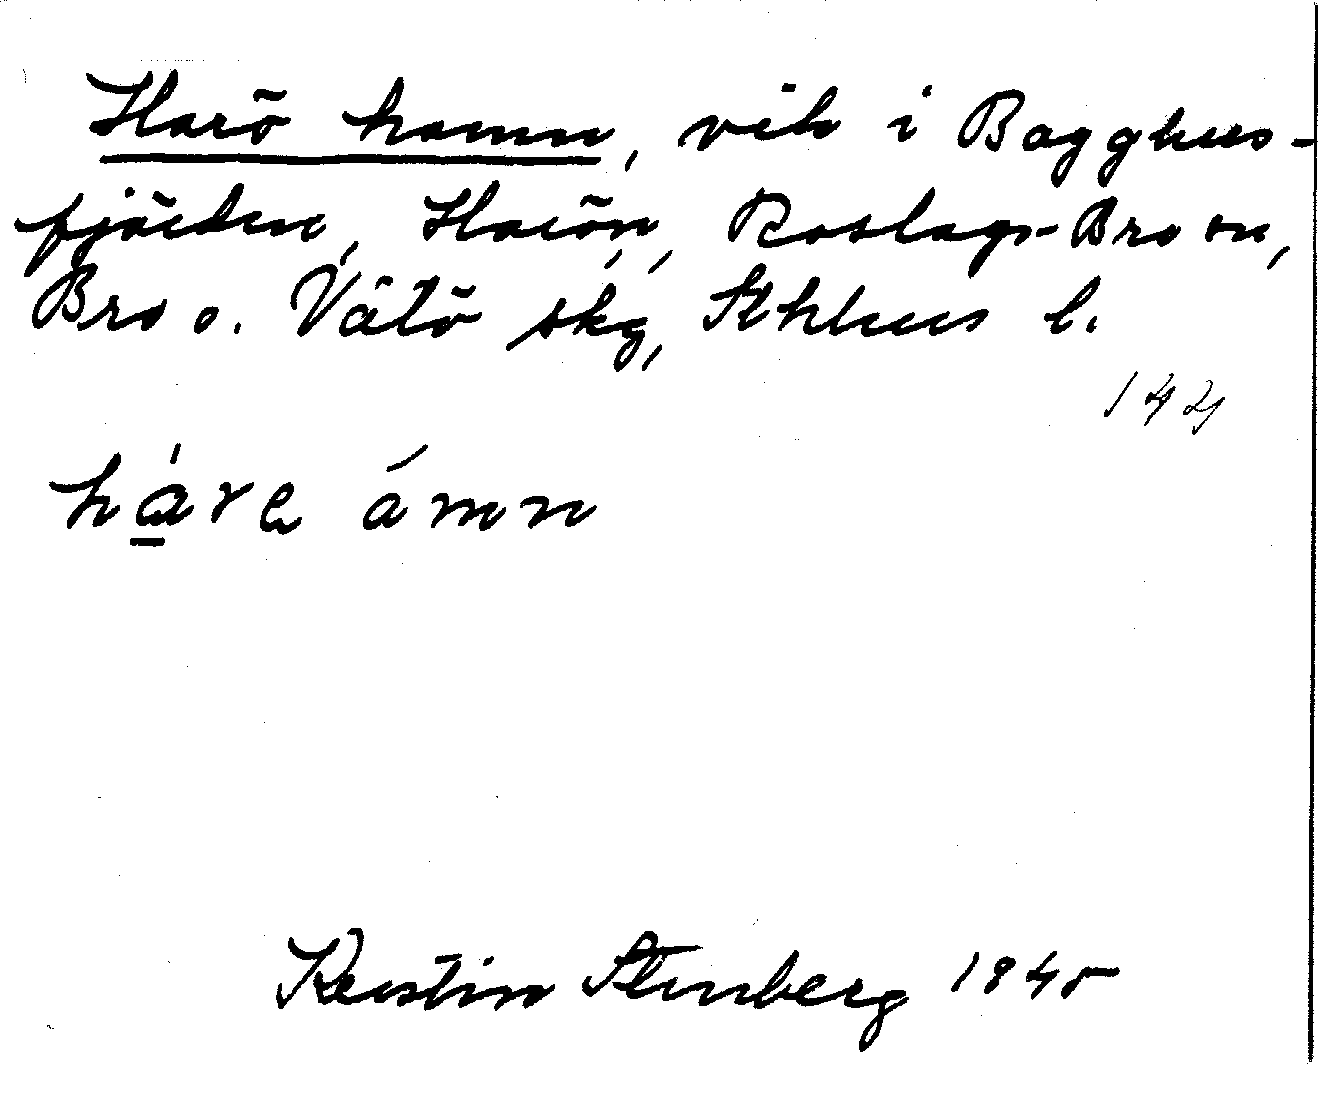 Harö hamn, vik i Bagghus-
fjärden, Harön, Roslags-Bro sn,
Bro o. Vätö skg, Sthlms l.
144
hárа ámn
Kerstin Stenberg 1945